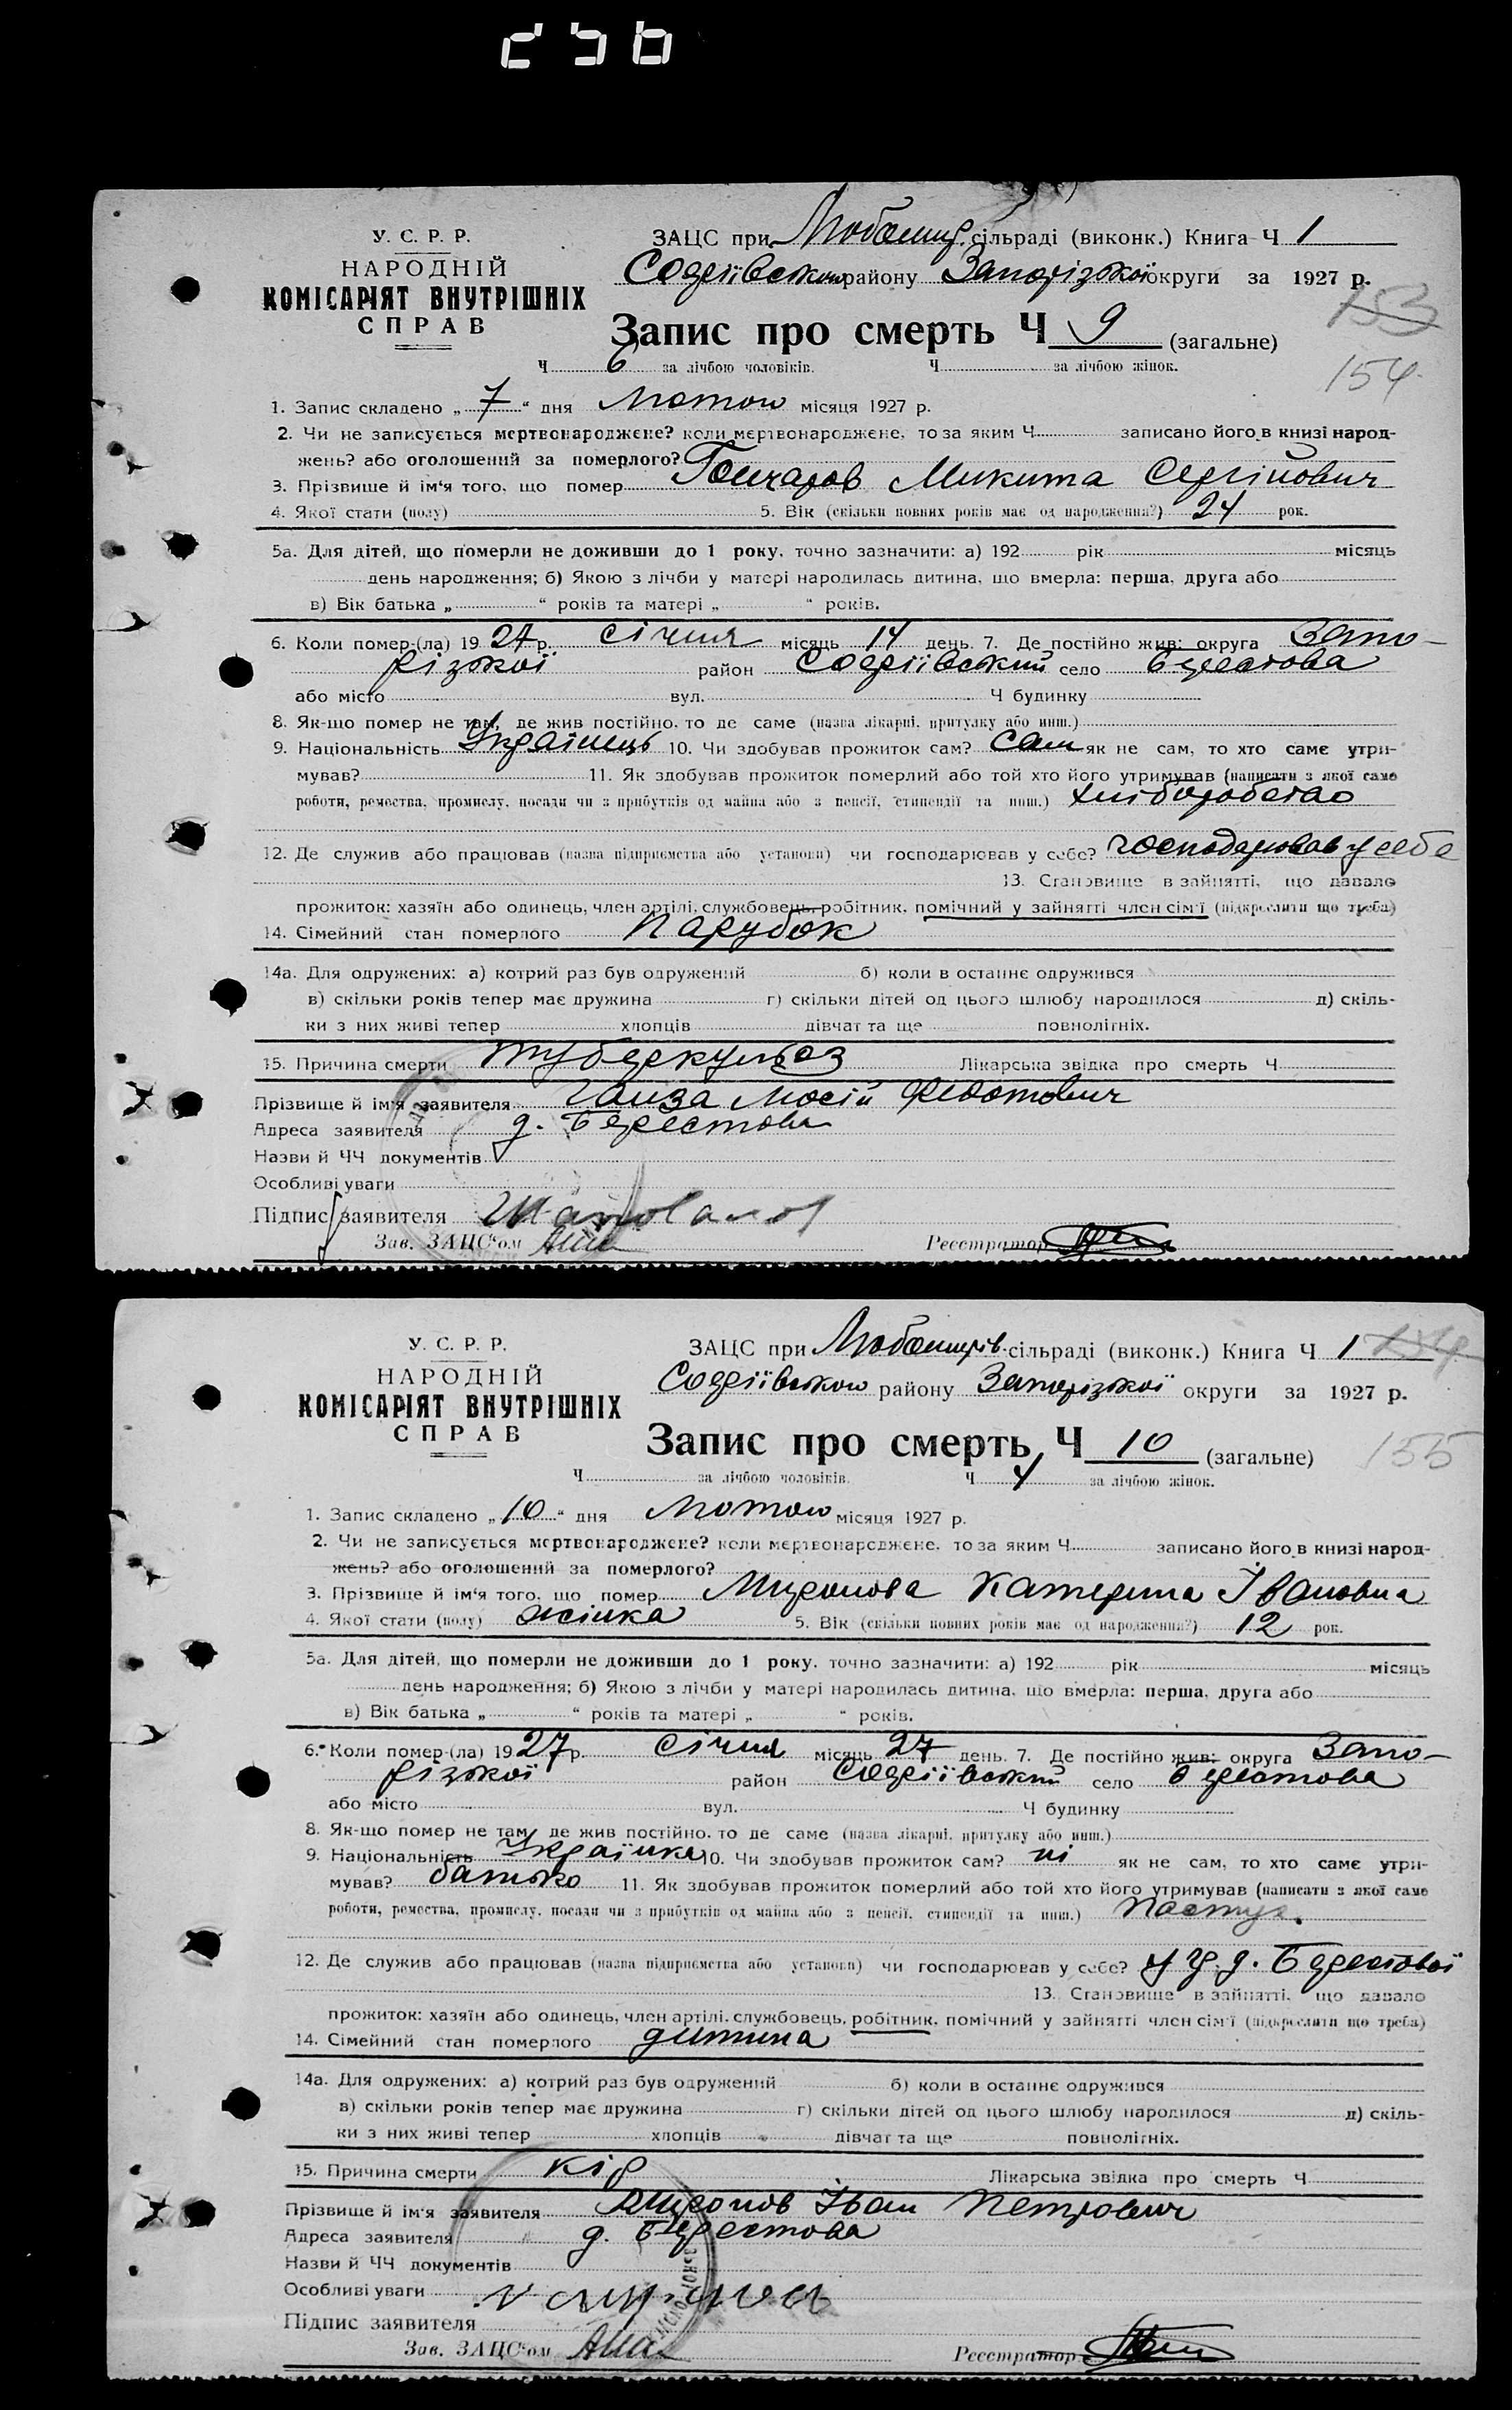 У. С. Р. Р.
НАРОДНІЙ
КОМІСАРІЯТ ВНУТРІШНІХ
СПРАВ
ЗАЦС при сільраді (виконк.) Книга Ч 1
району Запорізької округи за 1927 р.
153
Запис про смерть Ч 9 (загальне)
Ч 6 за лічбою чоловіків. Ч за лічбою жінок.
154
1. Запис складено „ 7 “ дня Лютого місяця 1927 р.
2. Чи не записується мертвонароджене? коли мертвонароджене, то за яким Ч записано його в книзі народ-
жень? або оголошений за померлого?
3. Прізвище й ім‘я того, що помер Гончаров Микита Сергійович
4. Якої стати (полу) 5. Вік (скільки повних років має од народження?) 24 рок.
5а. Для дітей, що померли не доживши до 1 року, точно зазначити: а) 192 рік місяць
день народження; б) Якою з лічби у матері народилась дитина, що вмерла: перша, друга або
в) Вік батька „ “ років та матері „ “ років.
6. Коли помер-(ла) 1927 р. Січня місяць 14 день. 7. Де постійно жив: округа Запо-
різької район село Берестова
або місто вул. Ч будинку
8. Як-що помер не там, де жив постійно, то де саме (назва лікарні, притулку або инш.)
9. Національність Українець 10. Чи здобував прожиток сам? Сам як не сам, то хто саме утри-
мував? 11. Як здобував прожиток померлий або той хто його утримував (написати з якої саме
роботи, ремества, промислу, посади чи з прибутків од майна або з пенсії, стипендії та инш.)
12. Де служив або працював (назва підприємства або установи) чи господарював у себе? господарював у себе
13. Становище в зайнятті, що давало
прожиток: хазяїн або одинець, член артілі, службовець, робітник, помічний у зайнятті член сім‘ї (підкреслити що треба)
14. Сімейний стан померлого Парубок
14а. Для одружених: а) котрий раз був одружений б) коли в останнє одружився
в) скільки років тепер має дружина г) скільки дітей од цього шлюбу народилося д) скіль-
ки з них живі тепер хлопців дівчат та ще повнолітніх.
15. Причина смерти туберкульоз Лікарська звідка про смерть Ч
Прізвище й ім‘я заявителя Федотович
Адреса заявителя д. Берестова
Назви й ЧЧ документів
Особливі уваги
Підпис заявителя
Зав. ЗАЦС‘ом Реєстратор
У. С. Р. Р.
НАРОДНІЙ
КОМІСАРІЯТ ВНУТРІШНІХ
СПРАВ
ЗАЦС при сільраді (виконк.) Книга Ч 1
154
району Запорізької округи за 1927 р.
Запис про смерть Ч 10 (загальне)
155
Ч за лічбою чоловіків. Ч 4 за лічбою жінок.
1. Запис складено „ 10 “ дня Лютого місяця 1927 р.
2. Чи не записується мертвонароджене? коли мертвонароджене, то за яким Ч записано його в книзі народ-
жень? або оголошений за померлого?
3. Прізвище й ім‘я того, що помер Миронова Катерина Івановна
4. Якої стати (полу) жінка 5. Вік (скільки повних років має од народження?) 12 рок.
5а. Для дітей, що померли не доживши до 1 року, точно зазначити: а) 192 рік місяць
день народження; б) Якою з лічби у матері народилась дитина, що вмерла: перша, друга або
в) Вік батька „ “ років та матері „ “ років.
6. Коли помер-(ла) 1927 р. Січня місяць 27 день. 7. Де постійно жив: округа Запо-
різької район село Берестова
або місто вул. Ч будинку
8. Як-що помер не там, де жив постійно, то де саме (назва лікарні, притулку або инш.)
9. Національність Українка 10. Чи здобував прожиток сам? ні як не сам, то хто саме утри-
мував? батько 11. Як здобував прожиток померлий або той хто його утримував (написати з якої саме
роботи, ремества, промислу, посади чи з прибутків од майна або з пенсії, стипендії та инш.) Пастух.
12. Де служив або працював (назва підприємства або установи) чи господарював у себе? у гр. д. Берестової
13. Становище в зайнятті, що давало
прожиток: хазяїн або одинець, член артілі, службовець, робітник, помічний у зайнятті член сім‘ї (підкреслити що треба)
14. Сімейний стан померлого дитина
14а. Для одружених: а) котрий раз був одружений б) коли в останнє одружився
в) скільки років тепер має дружина г) скільки дітей од цього шлюбу народилося д) скіль-
ки з них живі тепер хлопців дівчат та ще повнолітніх.
15. Причина смерти кір Лікарська звідка про смерть Ч
Прізвище й ім‘я заявителя Миронов Іван Петрович
Адреса заявителя д. Берестова
Назви й ЧЧ документів
Особливі уваги
Підпис заявителя
Зав. ЗАЦС‘ом Реєстратор